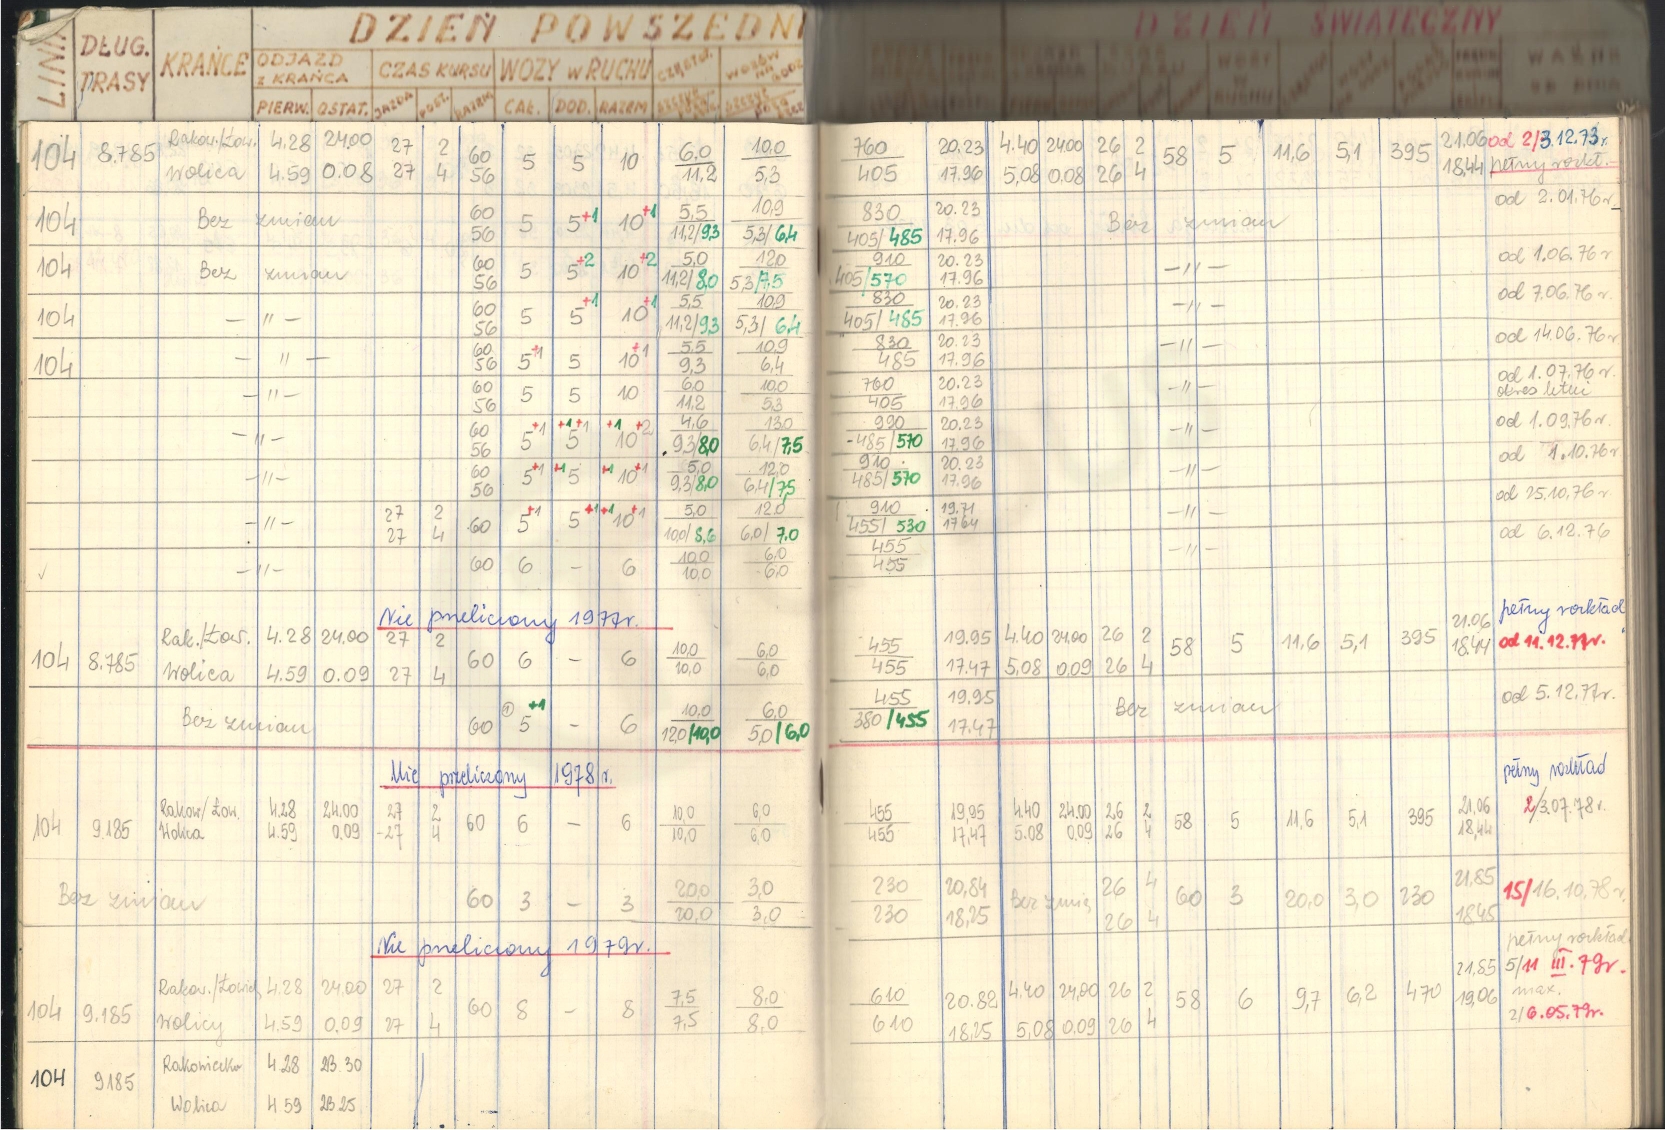 DZIEŃ POWSZEDNI
DZIEŃ ŚWIĄTECZNY
LINIA DŁUG. TRASY KRAŃCE ODJAZD Z KRAŃCA CZAS KURSU WOZY W RUCHU
PIERW. OSTAT. JAZDA POST. RAZEM CAŁ. DOD. RAZEM
104 8.785 Rakow./Łow. 4.28 24.00 27 2 60 5 5 10 6,0 10,0 760 20.23 4.40 24.00 26 2 58 5 11,6 5,1 395 21.06 od 2/3.12.73r.
Wolica 4.59 0.08 27 4 56 11,2 5,3 405 17.96 5,08 0.08 26 4 18,44 pełny rozkł.
104 Bez zmian 60 5 5+1 10+1 5,5 10,9 830 20.23 Bez zmian od 2.01.76r.
56 11,2/9,3 5,3/6,4 405/485 17.96
104 Bez zmian 60 5 5+2 10+2 5,0 12,0 910 20.23 -"- od 1.06.76r
56 11,2/8,0 5,3/7,5 405/570 17.96
104 -"- 60 5 5+1 10+1 5,5 10,9 830 20.23 -"- od 7.06.76r.
56 11,2/9,3 5,3/6,4 405/485 17.96
104 -"- 60 5+1 5 10+1 5,5 10,9 830 20.23 -"- od 14.06.76r
56 9,3 6,4 485 17.96
-"- 60 5 5 10 6,0 10,0 760 20.23 -"- od 1.07.76r.
56 11,2 5,3 405 17.96 okres letni
-"- 60 5+1 +1 5+1 +1 10+2 4,6 13,0 990 20.23 -"- od 1.09.76r.
56 9,3/8,0 6,4/7,5 485/570 17.96
-"- 60 5+1 +1 5 +1 10+1 5,0 12,0 910 20.23 -"- od 1.10.76r
56 9,3/8,0 6,4/7,5 485/570 17.96
-"- 27 2 60 5+1 5+1 +1 10+1 5,0 12,0 910 19.71 -"- od 25.10.76r.
27 4 10,0/8,6 6,0/7,0 455/530 17.64
-"- 60 6 – 6 10,0 6,0 455 -"- od 6.12.76
10,0 6,0 455
Nie przeliczony 1977r.
104 8.785 Rak./Łow. 4.28 24.00 27 2 60 6 – 6 10,0 6,0 455 19.95 4.40 24.00 26 2 58 5 11,6 5,1 395 21.06 pełny rozkład
Wolica 4.59 0.09 27 4 10,0 6,0 455 17.47 5,08 0.09 26 4 18.44 od 11.12.77r.
Bez zmian 60 5+1 – 6 10,0 6,0 455 19,95 Bez zmian od 5.12.77r.
12,0/10,0 5,0/6,0 380/455 17.47
Nie przeliczony 1978r.
pełny rozkład
104 9.185 Rakow/Łow. 4.28 24.00 27 2 60 6 – 6 10,0 6,0 455 19,95 4.40 24.00 26 2 58 5 11,6 5,1 395 21,06 2/3.07.78r.
Wolica 4.59 0,09 27 4 10,0 6,0 455 17,47 5.08 0.09 26 4 18,44
Bez zmian 60 3 – 3 20,0 3,0 230 20,84 Bez zmia 26 4 60 3 20,0 3,0 230 21,85 15/16.10.78r.
20,0 3,0 230 18,25 26 4 18,45
Nie przeliczony 1979r.
pełny rozkład
104 9.185 Rakow./Łowick 4.28 24.00 27 2 60 8 – 8 7,5 8,0 610 20.82 4.40 24,00 26 2 58 6 9,7 6,2 470 21,85 5/11 III.79r.
Wolicy 4.59 0,09 27 4 7,5 8,0 610 18,25 5,08 0.09 26 4 19,06 max.
2/6.05.79r.
104 9185 Rakowiecka 4.28 23.30
Wolica 4 59 23 25